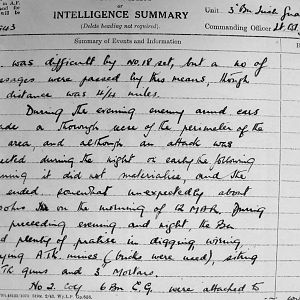 in A.F.
INTELLIGENCE SUMMARY
(Delete heading not required).
Unit 3 Bn Irish Gua
Commanding Officer Lt. Col.
1943
Summary of Events and Information
was difficult by No.18 set, but a no of
messages were passed by this means, though
distance was 4/4 miles.
During the evening enemy armd cars
made a thorough of the perimeter of the
area, and although an attack was
expected during the night or early the following
it did not materialise, and the
ended somewhat unexpectedly about
on the morning of 12 MAR. During
preceding evening and night, the Bn
had plenty of practise in digging, wiring,
laying A.Tk. mines (bricks were used), siting
A.Tk guns and 3" Mortars.
No 2. Coy 6 Bn C.G. were attached to